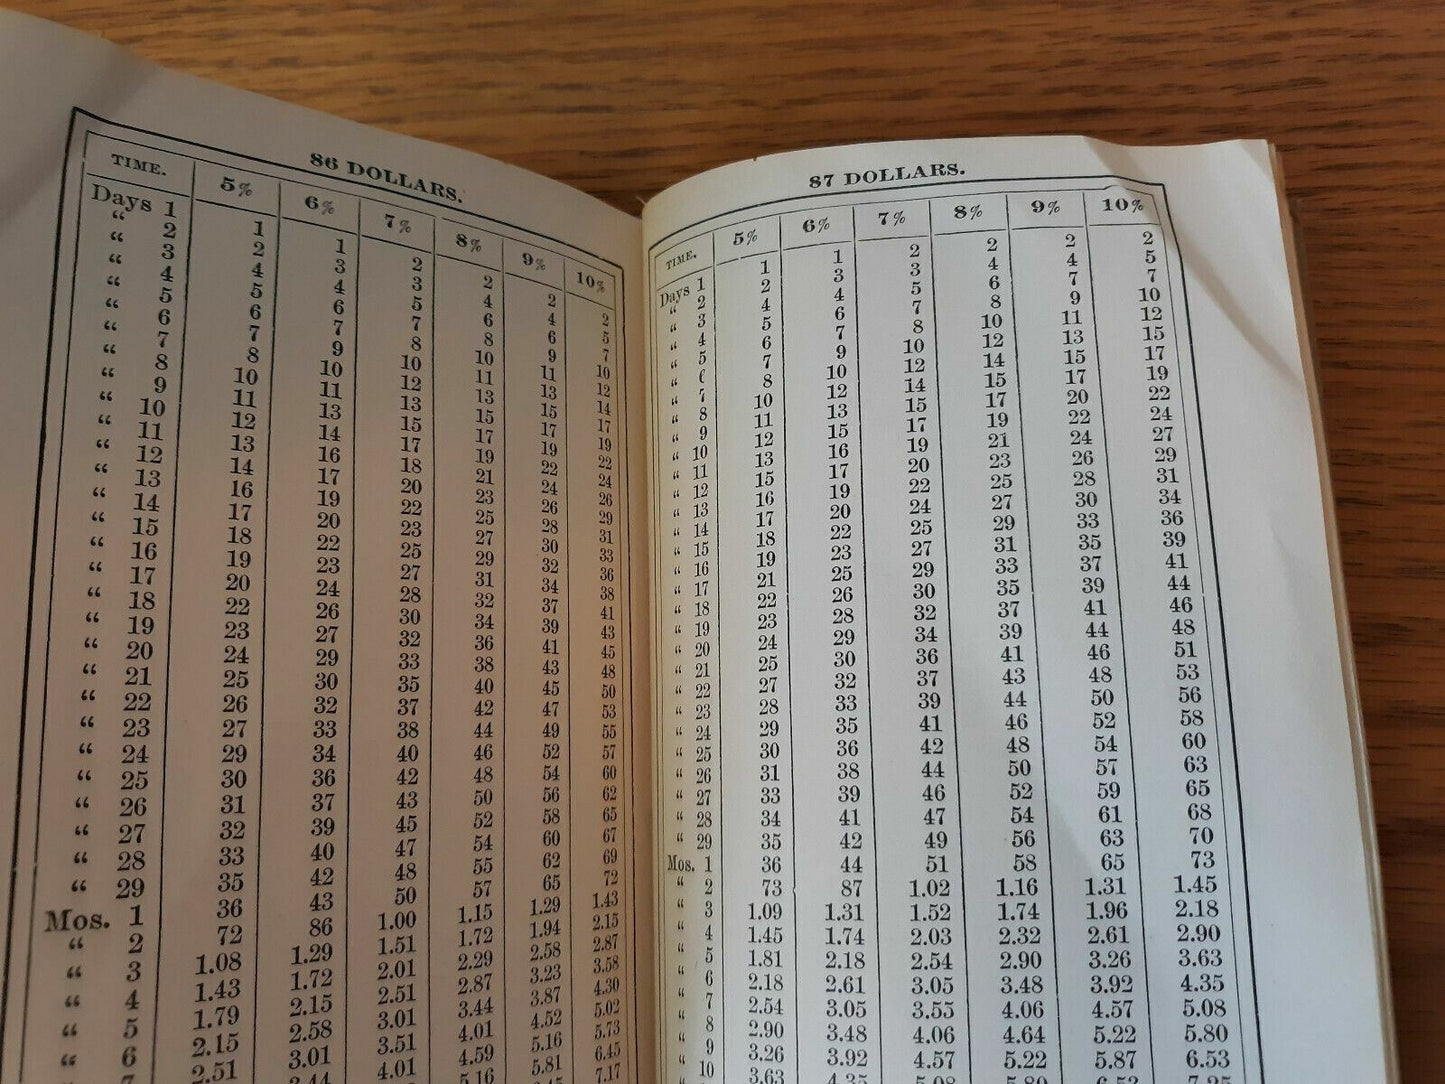 86 DOLLARS.
TIME. 5% 6% 7% 8% 9% 10%
Days 1 1 1 2 2 2 2
“ 2 2 3 3 4 4 5
“ 3 4 4 5 6 6 7
“ 4 5 6 7 8 9 10
“ 5 6 7 8 10 11 12
“ 6 7 9 10 11 13 14
“ 7 8 10 12 13 15 17
“ 8 10 11 13 15 17 19
“ 9 11 13 15 17 19 22
“ 10 12 14 17 19 22 24
“ 11 13 16 18 21 24 26
“ 12 14 17 20 23 26 29
“ 13 16 19 22 25 28 31
“ 14 17 20 23 27 30 33
“ 15 18 22 25 29 32 36
“ 16 19 23 27 31 34 38
“ 17 20 24 28 32 37 41
“ 18 22 26 30 34 39 43
“ 19 23 27 32 36 41 45
“ 20 24 29 33 38 43 48
“ 21 25 30 35 40 45 50
“ 22 26 32 37 42 47 53
“ 23 27 33 38 44 49 55
“ 24 29 34 40 46 52 57
“ 25 30 36 42 48 54 60
“ 26 31 37 43 50 56 62
“ 27 32 39 45 52 58 65
“ 28 33 40 47 54 60 67
“ 29 35 42 48 55 62 69
Mos. 1 36 43 50 57 65 72
“ 2 72 86 1.00 1.15 1.29 1.43
“ 3 1.08 1.29 1.51 1.72 1.94 2.15
“ 4 1.43 1.72 2.01 2.29 2.58 2.87
“ 5 1.79 2.15 2.51 2.87 3.23 3.58
“ 6 2.15 2.58 3.01 3.44 3.87 4.30
“ 7 2.51 3.01 3.51 4.01 4.52 5.02
3.44 4.01 4.59 5.16 5.73
5.16 5.81 6.45
6.45 7.17
87 DOLLARS.
TIME. 5% 6% 7% 8% 9% 10%
Days 1 1 1 2 2 2 2
“ 2 2 3 3 4 4 5
“ 3 4 4 5 6 7 7
“ 4 5 6 7 8 9 10
“ 5 6 7 8 10 11 12
“ 6 7 9 10 12 13 15
“ 7 8 10 12 14 15 17
“ 8 10 12 14 15 17 19
“ 9 11 13 15 17 20 22
“ 10 12 15 17 19 22 24
“ 11 13 16 19 21 24 27
“ 12 15 17 20 23 26 29
“ 13 16 19 22 25 28 31
“ 14 17 20 24 27 30 34
“ 15 18 22 25 29 33 36
“ 16 19 23 27 31 35 39
“ 17 21 25 29 33 37 41
“ 18 22 26 30 35 39 44
“ 19 23 28 32 37 41 46
“ 20 24 29 34 39 44 48
“ 21 25 30 36 41 46 51
“ 22 27 32 37 43 48 53
“ 23 28 33 39 44 50 56
“ 24 29 35 41 46 52 58
“ 25 30 36 42 48 54 60
“ 26 31 38 44 50 57 63
“ 27 33 39 46 52 59 65
“ 28 34 41 47 54 61 68
“ 29 35 42 49 56 63 70
Mos. 1 36 44 51 58 65 73
“ 2 73 87 1.02 1.16 1.31 1.45
“ 3 1.09 1.31 1.52 1.74 1.96 2.18
“ 4 1.45 1.74 2.03 2.32 2.61 2.90
“ 5 1.81 2.18 2.54 2.90 3.26 3.63
“ 6 2.18 2.61 3.05 3.48 3.92 4.35
“ 7 2.54 3.05 3.55 4.06 4.57 5.08
“ 8 2.90 3.48 4.06 4.64 5.22 5.80
“ 9 3.26 3.92 4.57 5.22 5.87 6.53
“ 10 3.63 4.35 5.08 5.80 6.52 7.25